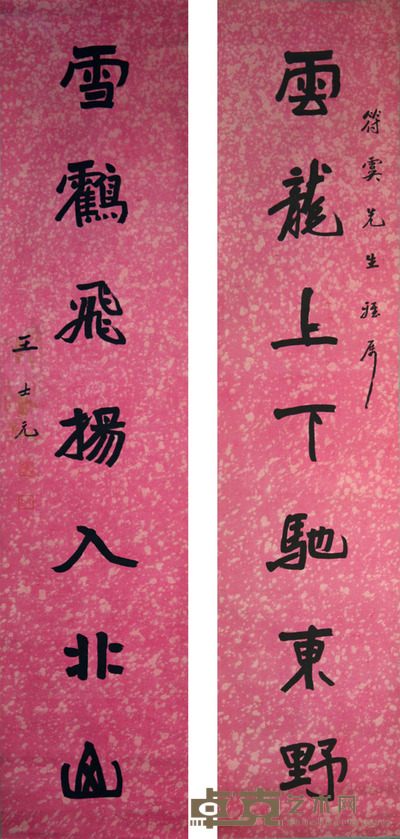 符雲先生雅屬
雲龍上下馳東野
雪鶴飛揚入北山
王士元
卓克艺术网